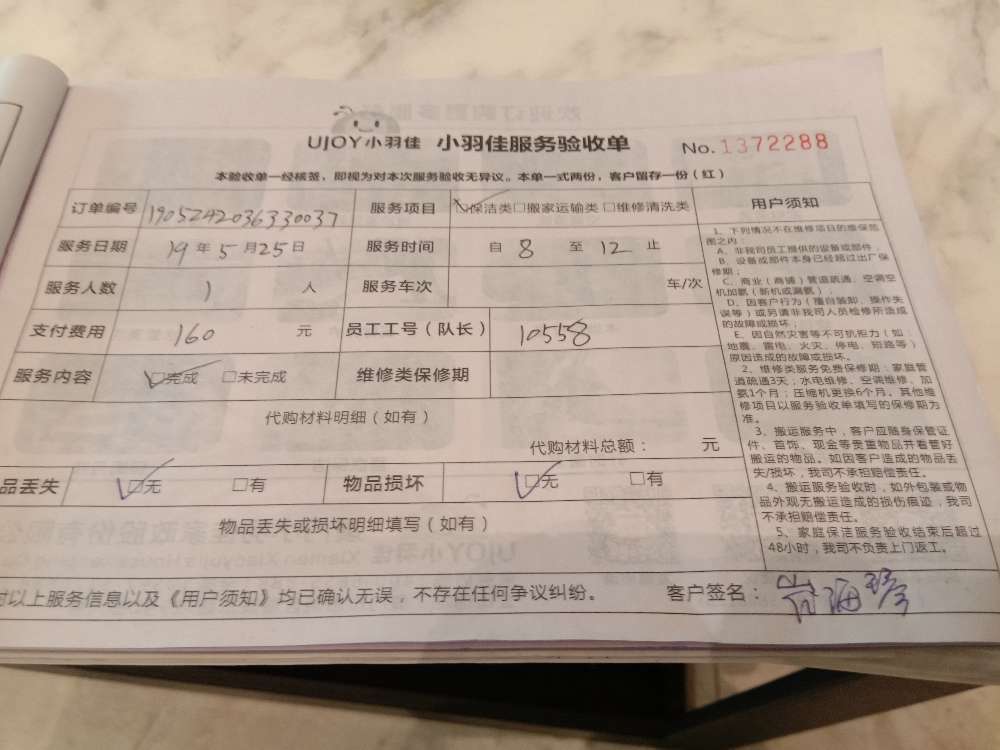 UJOY小羽佳 小羽佳服务验收单 No.1372288
本验收单一经核签，即视为对本次服务验收无异议。本单一式两份，客户留存一份（红）
订单编号 1905242036330037 服务项目 ☑保洁类□搬家运输类□维修清洗类
服务日期 19年5月25日 服务时间 自8至12止
服务人数 1人 服务车次 车/次
支付费用 160元 员工工号（队长） 10558
服务内容 ☑完成 □未完成 维修类保修期
代购材料明细（如有）
代购材料总额： 元
品丢失 ☑无 □有 物品损坏 ☑无 □有
物品丢失或损坏明细填写（如有）
对以上服务信息以及《用户须知》均已确认无误，不存在任何争议纠纷。 客户签名：
用户须知
1、下列情况不在维修项目的维保范
围之内：
A、非我司员工提供的设备或部件；
B、设备或部件本身已经超过出厂保
修期；
C、商业（商铺）管道疏通、空调空
机加氨（新机或漏氨）；
D、因客户行为（擅自装卸、操作失
误等）或另请非我司人员检修所造成
的故障或损坏；
E、因自然灾害等不可抗拒力（如：
地震、雷电、火灾、停电、短路等）
原因造成的故障或损坏。
2、维修类服务免费保修期：家庭管
道疏通3天；水电维修、空调维修、加
氨1个月；压缩机更换6个月。其他维
修项目以服务验收单填写的保修期为
准。
3、搬运服务中，客户应随身保管证
件、首饰、现金等贵重物品并看管好
搬运的物品。如因客户造成的物品丢
失/损坏，我司不承担赔偿责任。
4、搬运服务验收时，如外包装或物
品外观无搬运造成的损伤痕迹，我司
不承担赔偿责任。
5、家庭保洁服务验收结束后超过
48小时，我司不负责上门返工。